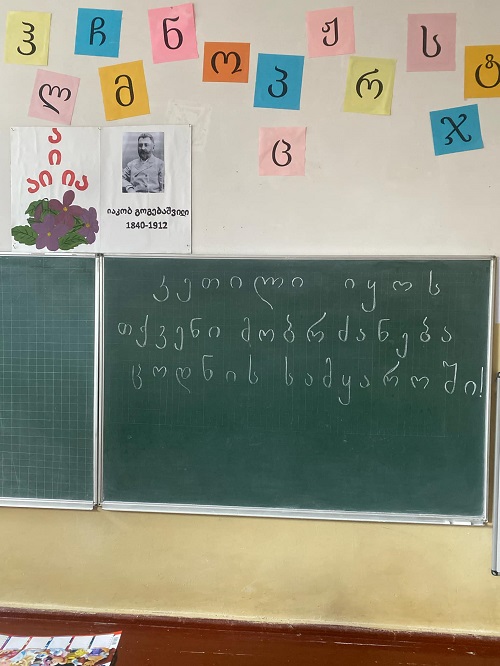 ჰ
ჩ
ნ
ჟ
ს
ლ
მ
ო
პ
რ
ტ
ც
ჯ
ა
ი
აი ია
იაკობ გოგებაშვილი
1840-1912
კეთილი იყოს
თქვენი მობრძანება
ცოდნის სამყაროში!